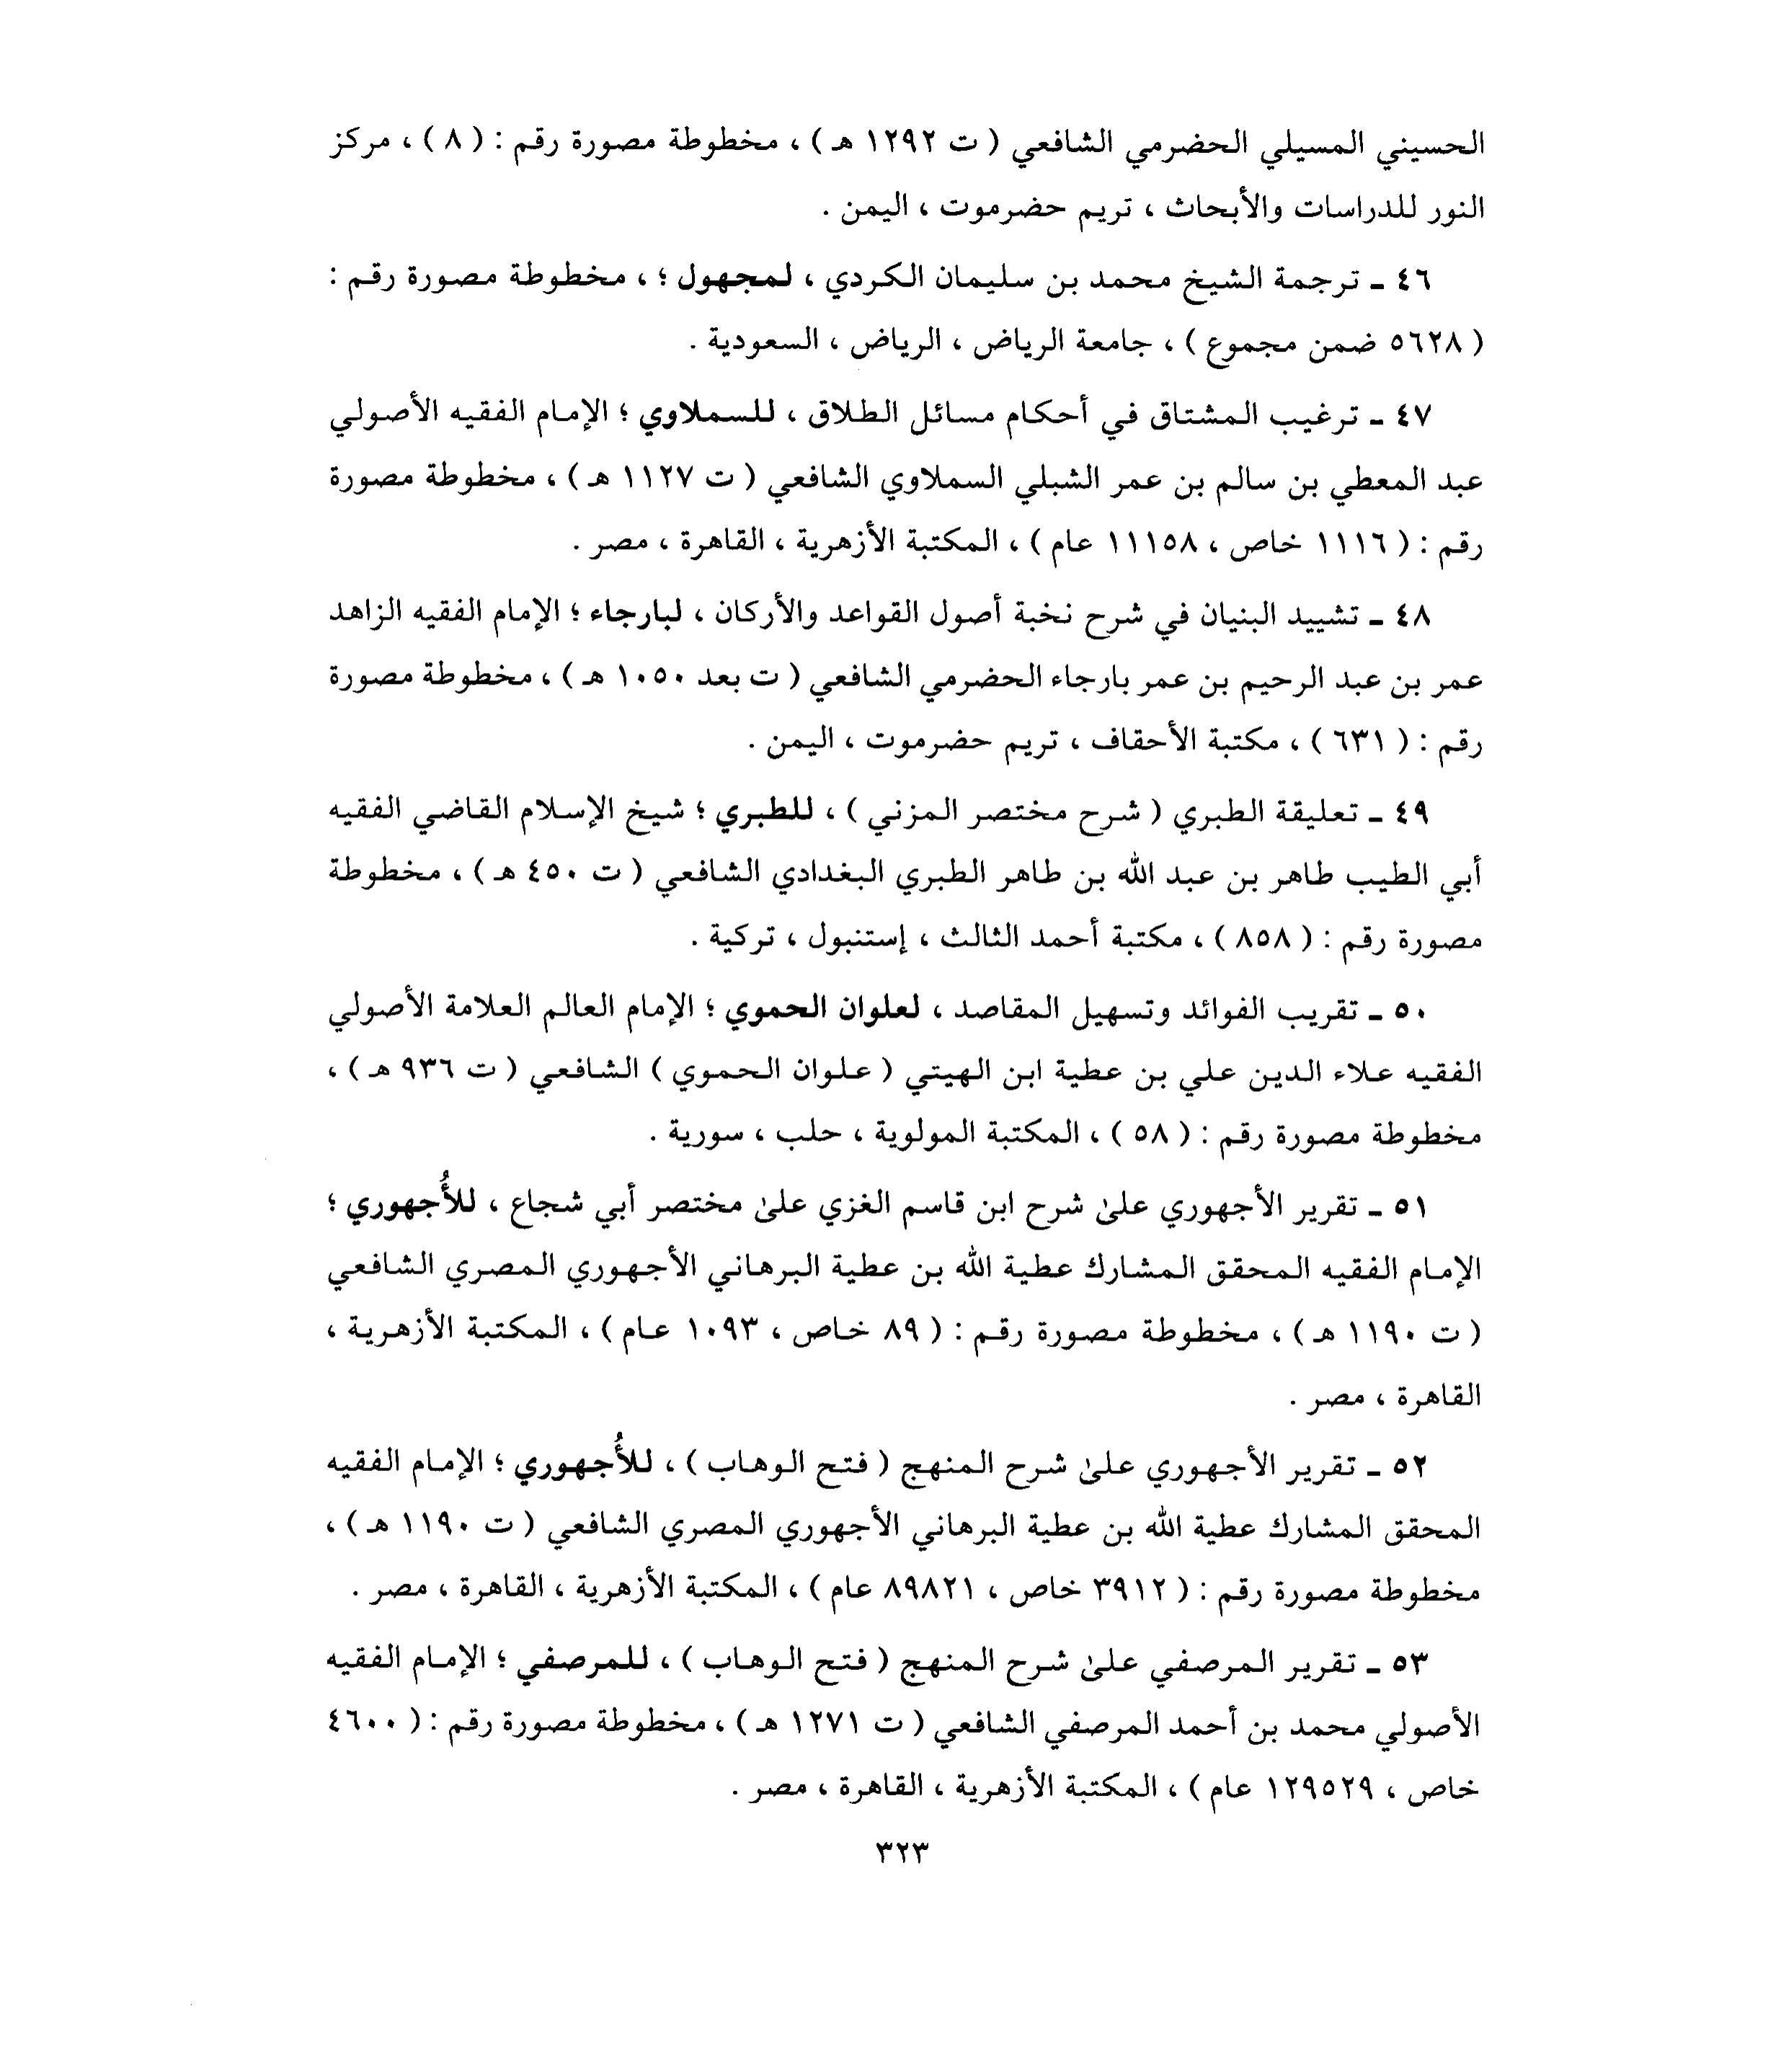 الحسيني المسيلي الحضرمي الشافعي ( ت ١٢٩٢ هـ ) ، مخطوطة مصورة رقم : ( ٨ ) ، مركز
النور للدراسات والأبحاث ، تريم حضرموت ، اليمن .
٤٦ ـ ترجمة الشيخ محمد بن سليمان الكردي ، لمجهول ؛ ، مخطوطة مصورة رقم :
( ٥٦٢٨ ضمن مجموع ) ، جامعة الرياض ، الرياض ، السعودية .
٤٧ ـ ترغيب المشتاق في أحكام مسائل الطلاق ، للسملاوي ؛ الإمام الفقيه الأصولي
عبد المعطي بن سالم بن عمر الشبلي السملاوي الشافعي ( ت ١١٢٧ هـ ) ، مخطوطة مصورة
رقم : ( ١١١٦ خاص ، ١١١٥٨ عام ) ، المكتبة الأزهرية ، القاهرة ، مصر .
٤٨ ـ تشييد البنيان في شرح نخبة أصول القواعد والأركان ، لبارجاء ؛ الإمام الفقيه الزاهد
عمر بن عبد الرحيم بن عمر بارجاء الحضرمي الشافعي ( ت بعد ١٠٥٠ هـ ) ، مخطوطة مصورة
رقم : ( ٦٣١ ) ، مكتبة الأحقاف ، تريم حضرموت ، اليمن .
٤٩ ـ تعليقة الطبري ( شرح مختصر المزني ) ، للطبري ؛ شيخ الإسلام القاضي الفقيه
أبي الطيب طاهر بن عبد الله بن طاهر الطبري البغدادي الشافعي ( ت ٤٥٠ هـ ) ، مخطوطة
مصورة رقم : ( ٨٥٨ ) ، مكتبة أحمد الثالث ، إستنبول ، تركية .
٥٠ ـ تقريب الفوائد وتسهيل المقاصد ، لعلوان الحموي ؛ الإمام العالم العلامة الأصولي
الفقيه علاء الدين علي بن عطية ابن الهيتي ( علوان الحموي ) الشافعي ( ت ٩٣٦ هـ ) ،
مخطوطة مصورة رقم : ( ٥٨ ) ، المكتبة المولوية ، حلب ، سورية .
٥١ ـ تقرير الأجهوري علىٰ شرح ابن قاسم الغزي علىٰ مختصر أبي شجاع ، للأُجهوري ؛
الإمام الفقيه المحقق المشارك عطية الله بن عطية البرهاني الأجهوري المصري الشافعي
( ت ١١٩٠ هـ ) ، مخطوطة مصورة رقم : ( ٨٩ خاص ، ١٠٩٣ عام ) ، المكتبة الأزهرية ،
القاهرة ، مصر .
٥٢ ـ تقرير الأجهوري علىٰ شرح المنهج ( فتح الوهاب ) ، للأُجهوري ؛ الإمام الفقيه
المحقق المشارك عطية الله بن عطية البرهاني الأجهوري المصري الشافعي ( ت ١١٩٠ هـ ) ،
مخطوطة مصورة رقم : ( ٣٩١٢ خاص ، ٨٩٨٢١ عام ) ، المكتبة الأزهرية ، القاهرة ، مصر .
٥٣ ـ تقرير المرصفي علىٰ شرح المنهج ( فتح الوهاب ) ، للمرصفي ؛ الإمام الفقيه
الأصولي محمد بن أحمد المرصفي الشافعي ( ت ١٢٧١ هـ ) ، مخطوطة مصورة رقم : ( ٤٦٠٠
خاص ، ١٢٩٥٢٩ عام ) ، المكتبة الأزهرية ، القاهرة ، مصر .
٣٢٣